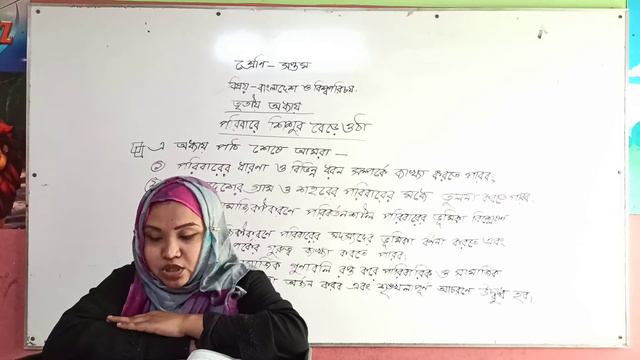 শ্রেণি - সপ্তম
বিষয় - বাংলাদেশ ও বিশ্বপরিচয়
তৃতীয় অধ্যায়
পরিবারে শিশুর বেড়ে ওঠা
এ অধ্যায় পাঠ শেষে আমরা —
পরিবারের ধারণা ও বিভিন্ন ধরন সম্পর্কে ব্যাখ্যা করতে পারব,
গ্রাম ও শহরের পরিবারের মধ্যে তুলনা করতে পারব,
পরিবর্তনশীল পরিবারের ভূমিকা বিশ্লেষণ
পরিবারের সদস্যদের ভূমিকা বর্ণনা করতে এবং
গুরুত্ব ব্যাখ্যা করতে পারব,
গুণাবলি রপ্ত করে পারিবারিক ও সামাজিক
অর্জন করব এবং শৃঙ্খলাপূর্ণ আচরণে উদ্বুদ্ধ হব,